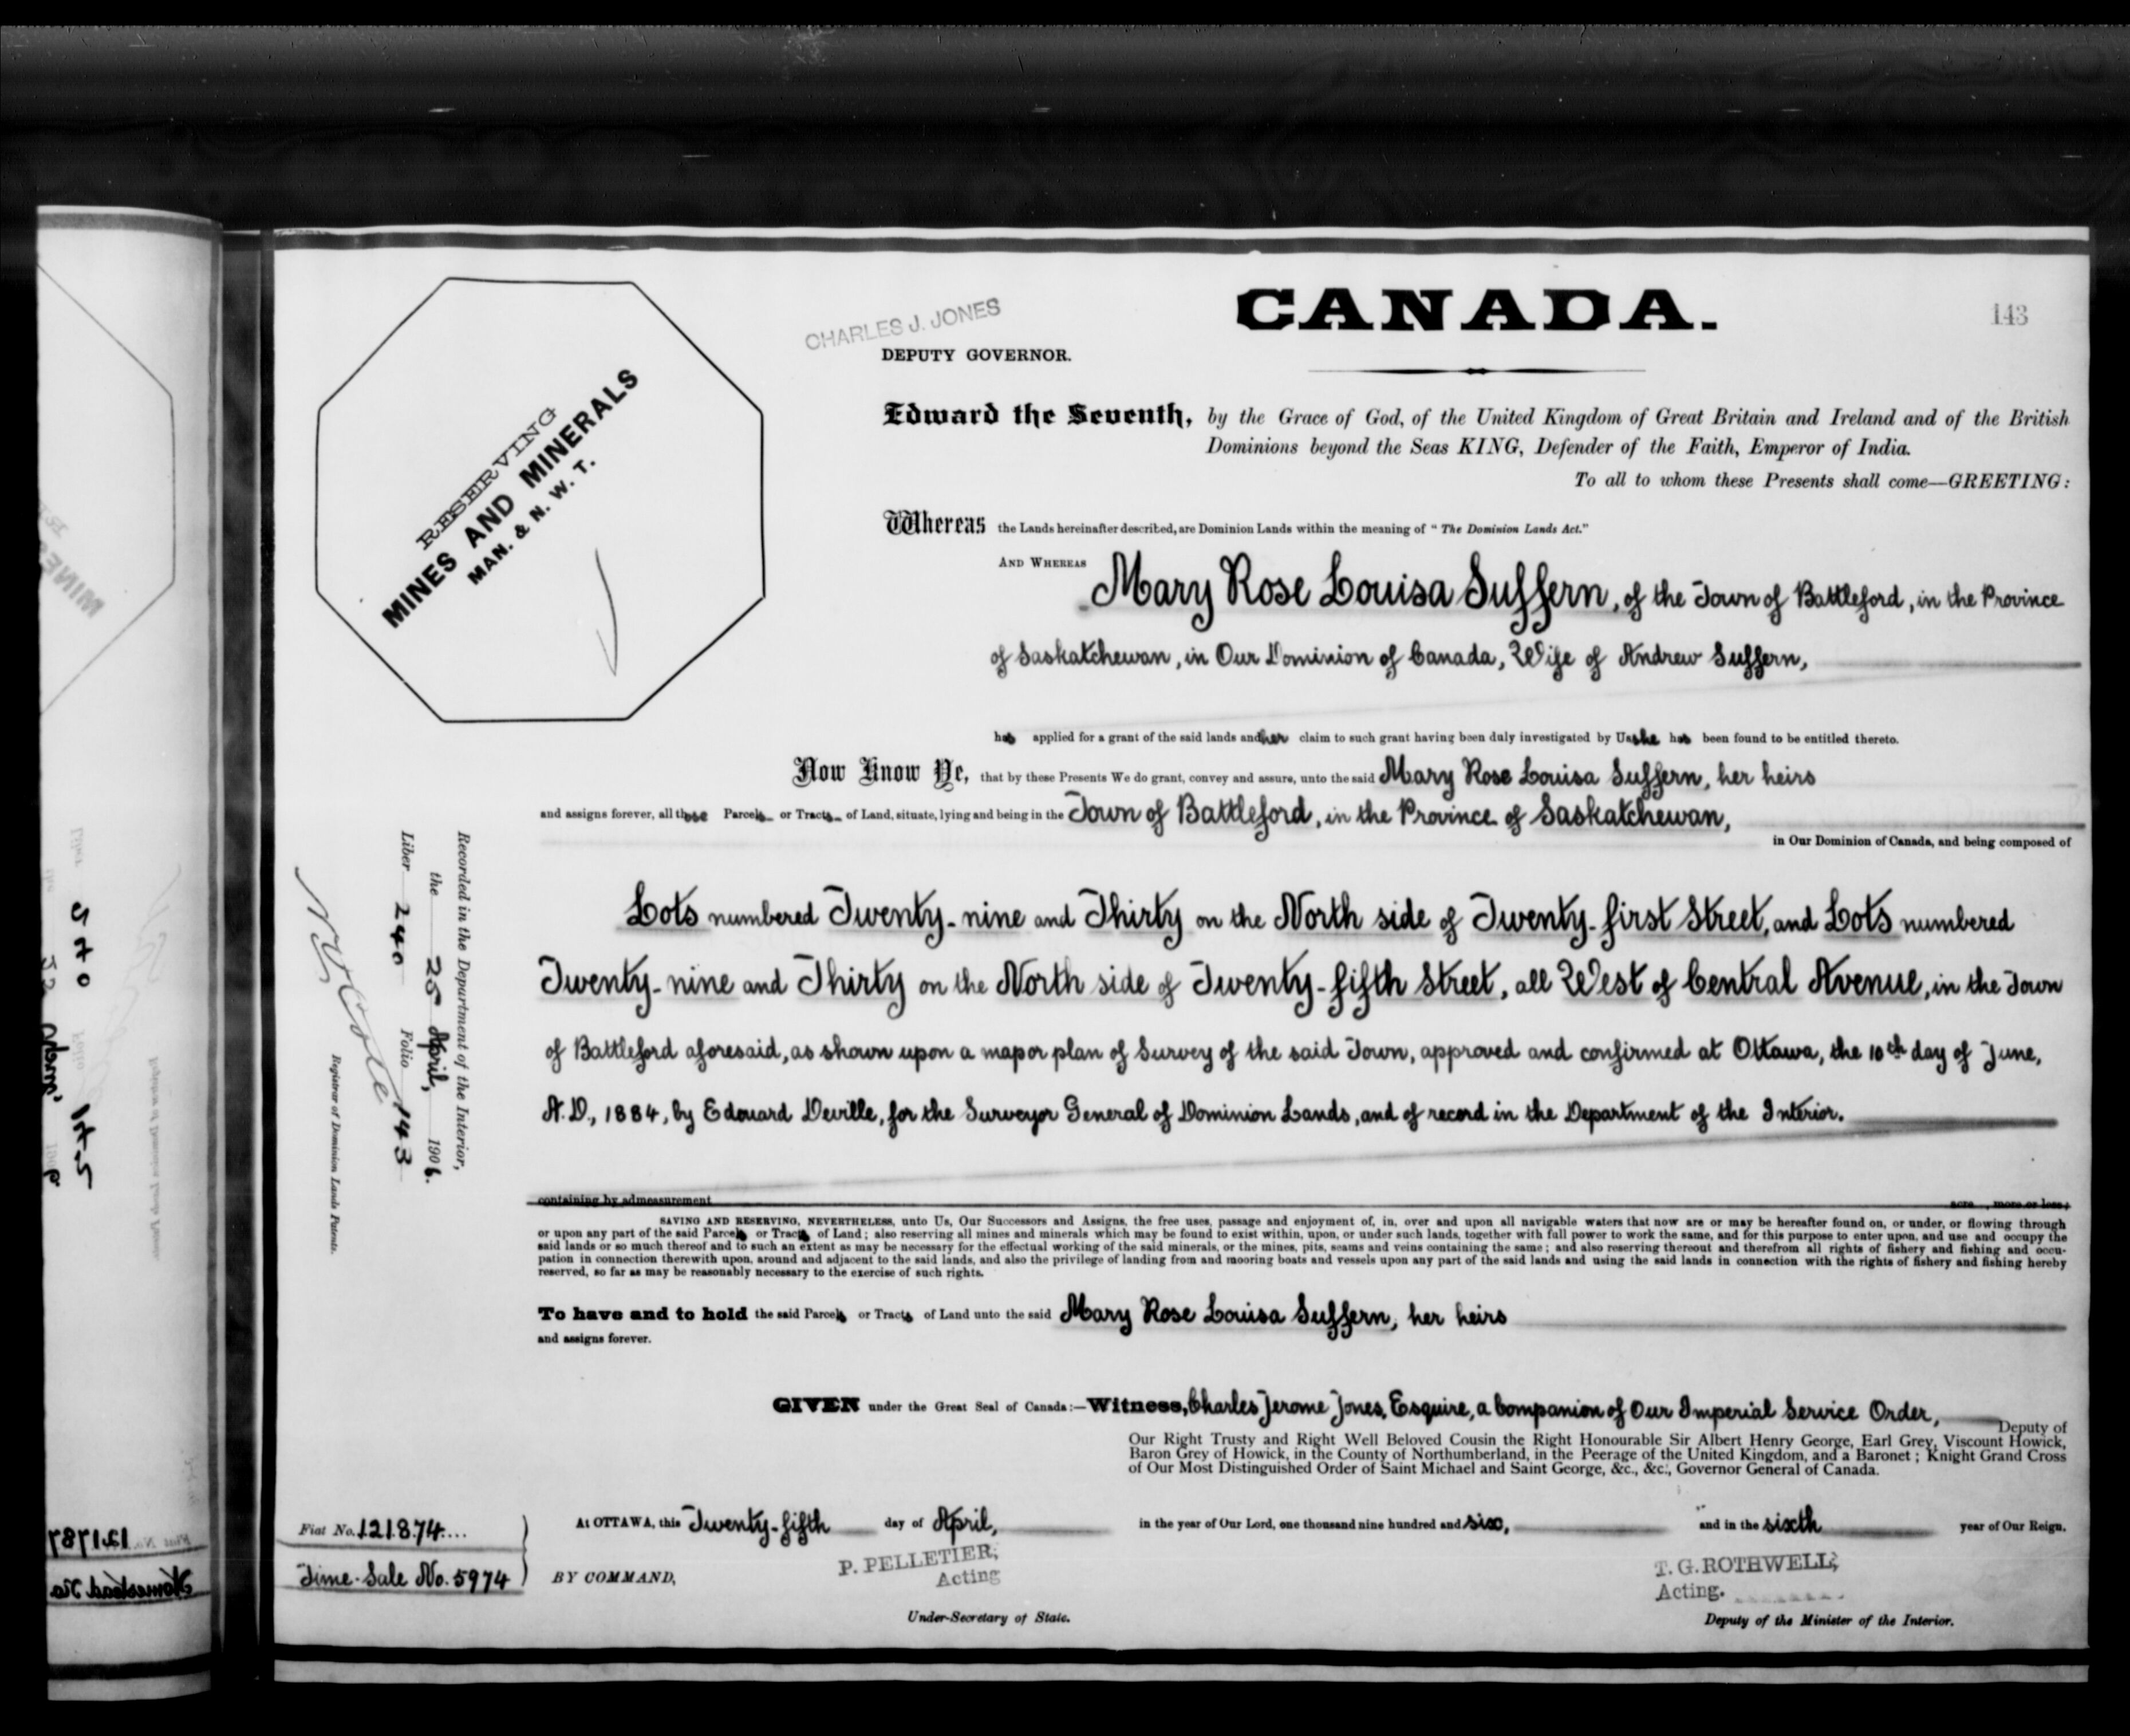 CANADA.
143
CHARLES J. JONES
DEPUTY GOVERNOR.
RESERVING
MINES AND MINERALS
MAN. & N. W. T.
Edward the Seventh, by the Grace of God, of the United Kingdom of Great Britain and Ireland and of the British
Dominions beyond the Seas KING, Defender of the Faith, Emperor of India.
To all to whom these Presents shall come—GREETING:
Whereas the Lands hereinafter described, are Dominion Lands within the meaning of "The Dominion Lands Act."
AND WHEREAS Mary Rose Louisa Suffern, of the Town of Battleford, in the Province
of Saskatchewan, in Our Dominion of Canada, Wife of Andrew Suffern,
has applied for a grant of the said lands and her claim to such grant having been duly investigated by Us she has been found to be entitled thereto.
Now Know Ye, that by these Presents We do grant, convey and assure, unto the said Mary Rose Louisa Suffern, her heirs
and assigns forever, all those Parcels or Tracts of Land, situate, lying and being in the Town of Battleford, in the Province of Saskatchewan,
in Our Dominion of Canada, and being composed of
Lots numbered Twenty-nine and Thirty on the North side of Twenty-first Street, and Lots numbered
Twenty-nine and Thirty on the North side of Twenty-fifth Street, all West of Central Avenue, in the Town
of Battleford aforesaid, as shown upon a map or plan of Survey of the said Town, approved and confirmed at Ottawa, the 10th day of June,
A.D., 1884, by Edouard Deville, for the Surveyor General of Dominion Lands, and of record in the Department of the Interior.
containing by admeasurement acre , more or less;
SAVING AND RESERVING, NEVERTHELESS, unto Us, Our Successors and Assigns, the free uses, passage and enjoyment of, in, over and upon all navigable waters that now are or may be hereafter found on, or under, or flowing through
or upon any part of the said Parcels or Tracts of Land; also reserving all mines and minerals which may be found to exist within, upon, or under such lands, together with full power to work the same, and for this purpose to enter upon, and use and occupy the
said lands or so much thereof and to such an extent as may be necessary for the effectual working of the said minerals, or the mines, pits, seams and veins containing the same; and also reserving thereout and therefrom all rights of fishery and fishing and occu-
pation in connection therewith upon, around and adjacent to the said lands, and also the privilege of landing from and mooring boats and vessels upon any part of the said lands and using the said lands in connection with the rights of fishery and fishing hereby
reserved, so far as may be reasonably necessary to the exercise of such rights.
To have and to hold the said Parcels or Tracts of Land unto the said Mary Rose Louisa Suffern, her heirs
and assigns forever.
GIVEN under the Great Seal of Canada:—Witness, Charles Jerome Jones, Esquire, a Companion of Our Imperial Service Order, Deputy of
Our Right Trusty and Right Well Beloved Cousin the Right Honourable Sir Albert Henry George, Earl Grey, Viscount Howick,
Baron Grey of Howick, in the County of Northumberland, in the Peerage of the United Kingdom, and a Baronet; Knight Grand Cross
of Our Most Distinguished Order of Saint Michael and Saint George, &c., &c., Governor General of Canada.
At OTTAWA, this Twenty-fifth day of April, in the year of Our Lord, one thousand nine hundred and six, and in the sixth year of Our Reign.
BY COMMAND,
P. PELLETIER,
Acting
Under-Secretary of State.
T. G. ROTHWELL,
Acting.
Deputy of the Minister of the Interior.
Fiat No. 121874....
Time-Sale No. 5974
Recorded in the Department of the Interior,
the 25 April, 1906.
Liber 240 Folio 143
Registrar of Dominion Lands Patents.